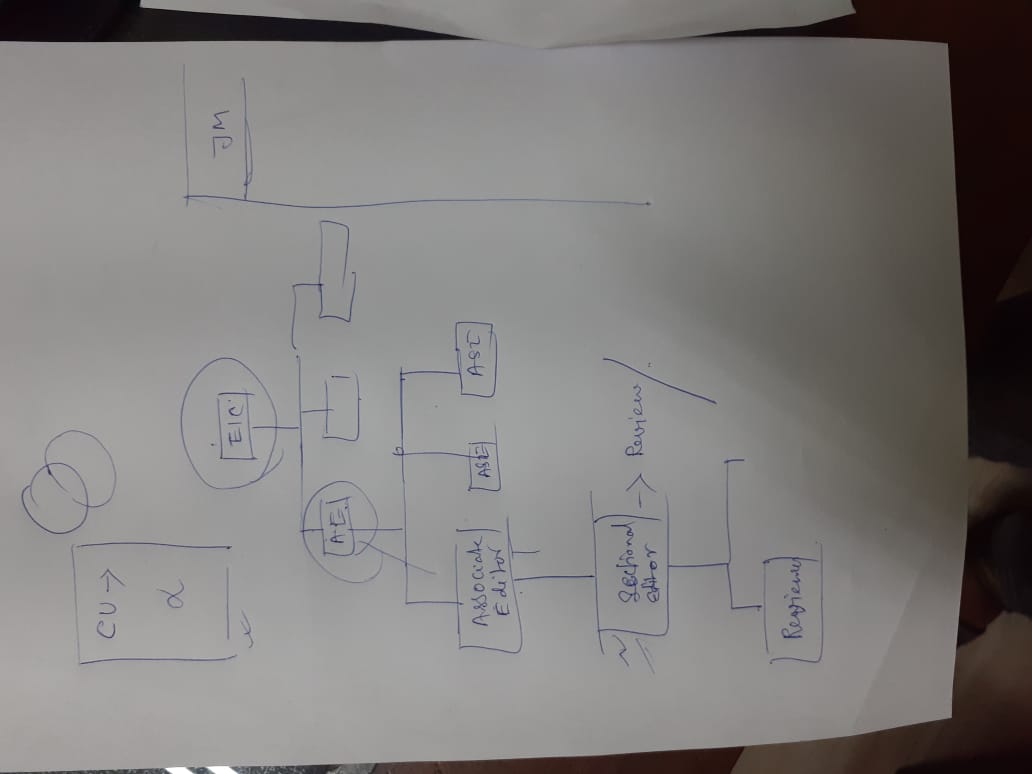 CU →
α
EIC
JM
A.E.
Associate
Editor
ASE
ASE
Sectional
editor
→ Review
Reviewer